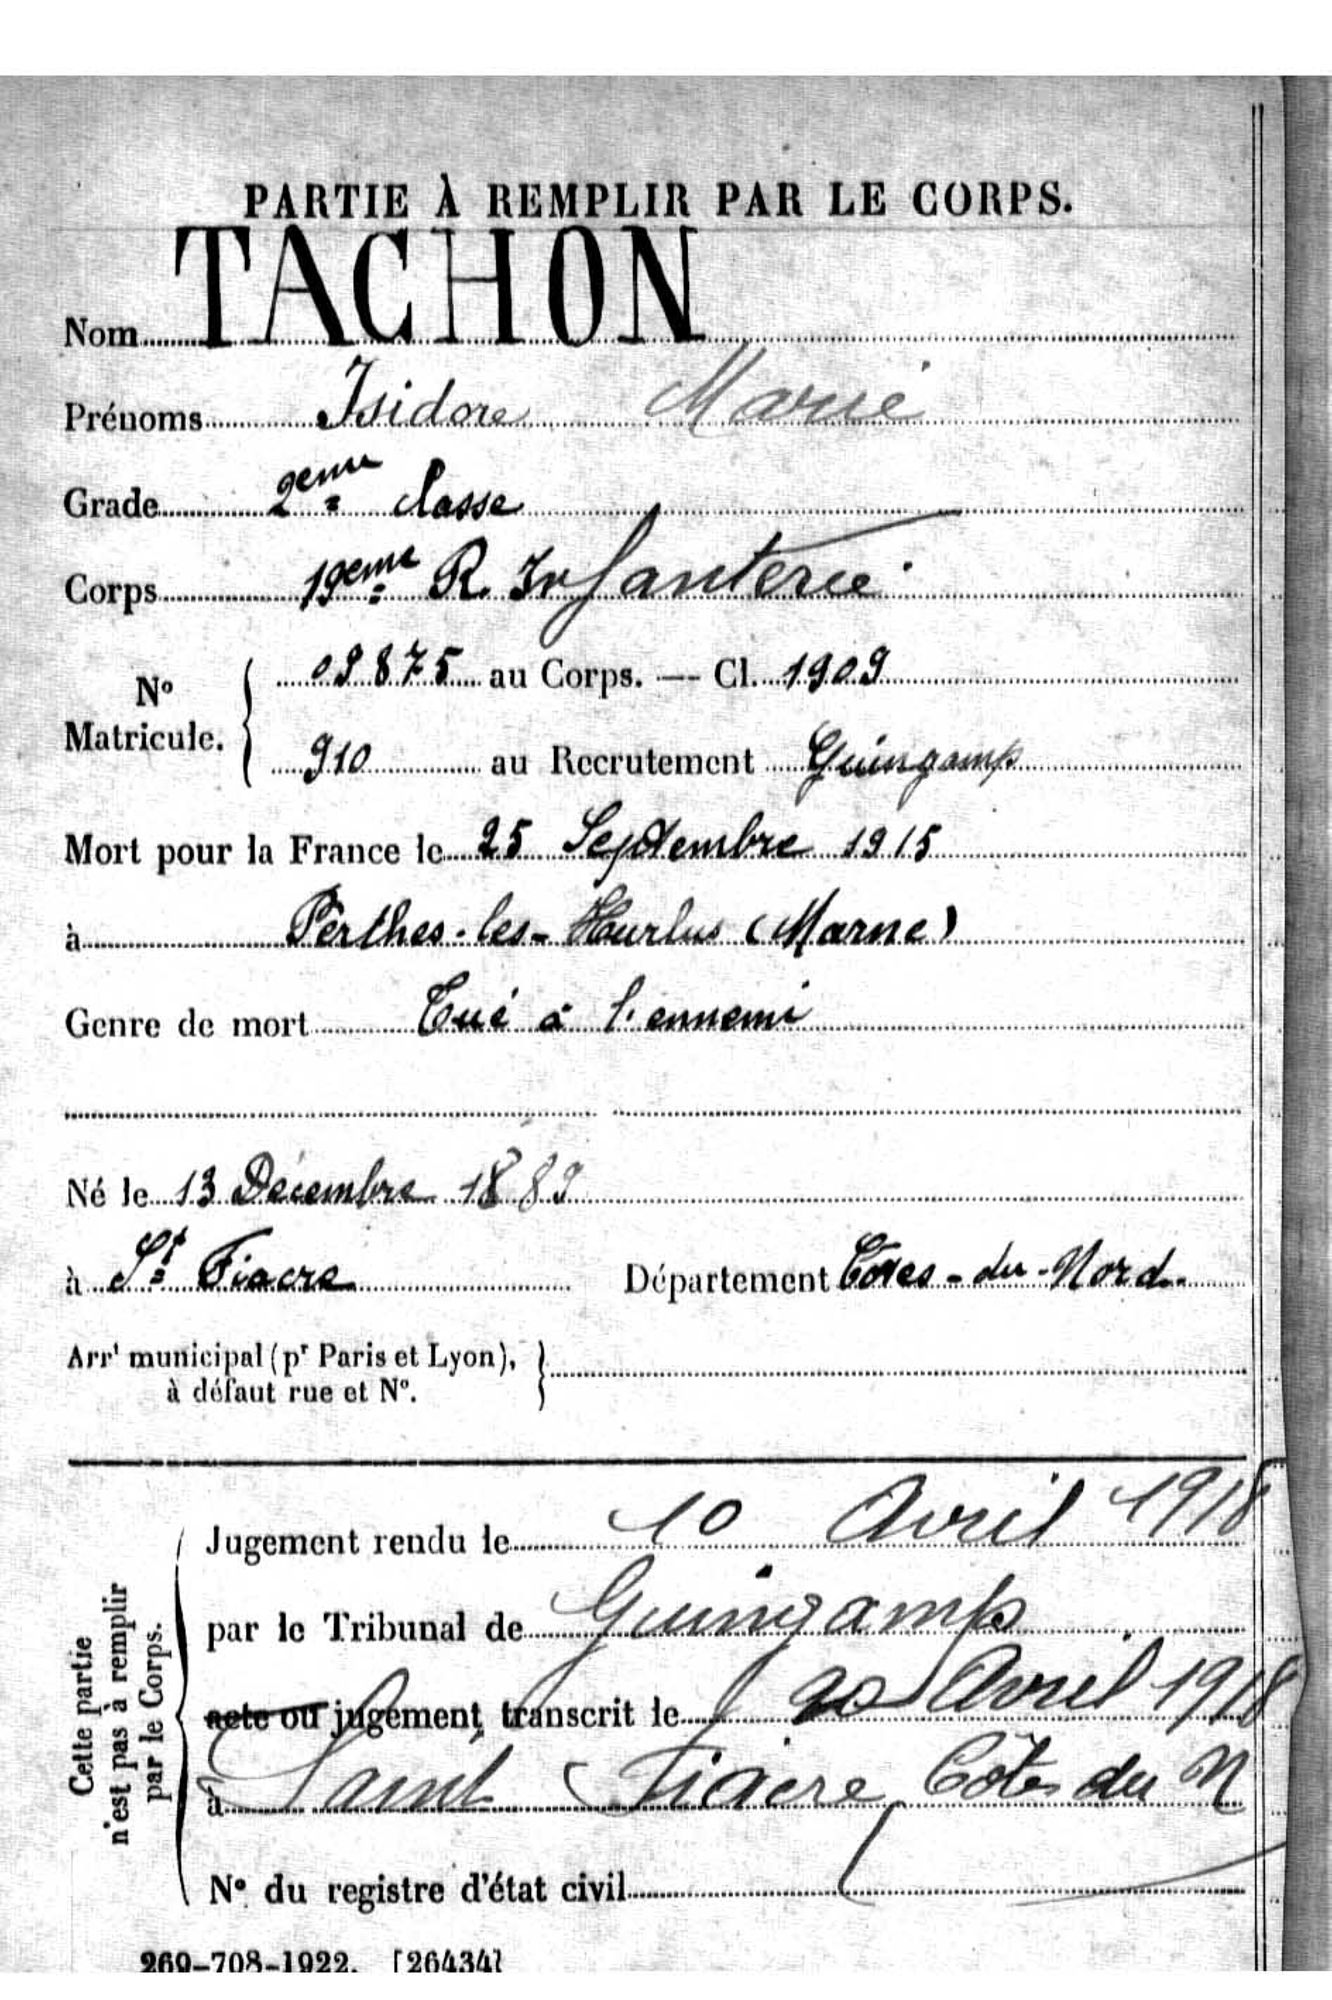 PARTIE À REMPLIR PAR LE CORPS.
Nom TACHON
Prénoms Isidore Marie
Grade 2eme classe
Corps 19eme R. Infanterie
No Matricule. 09875 au Corps. — Cl. 1909
910 au Recrutement Guingamp
Mort pour la France le 25 Septembre 1915
à Perthes-les-Hurlus (Marne)
Genre de mort Tué à l'ennemi
Né le 13 Décembre 1889
à St Fiacre Département Côtes-du-Nord
Arrt municipal (pr Paris et Lyon),
à défaut rue et No.
Cette partie
n'est pas à remplir
par le Corps.
Jugement rendu le 10 Avril 1918
par le Tribunal de Guingamp
acte ou jugement transcrit le 20 Avril 1918
à Saint Fiacre Côtes du N
No du registre d'état civil
269-708-1922. [26434]